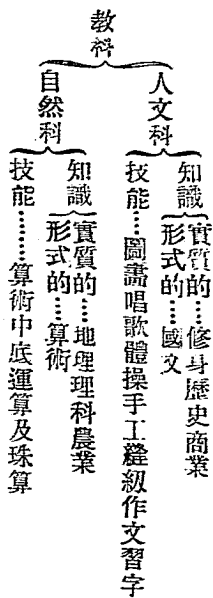 教科
人文科
知識
實質的……修身歷史商業
形式的……國文
技能……圖畫唱歌體操手工縫級作文習字
自然科
知識
實質的……地理理科農業
形式的……算術
技能………算術中底運算及珠算